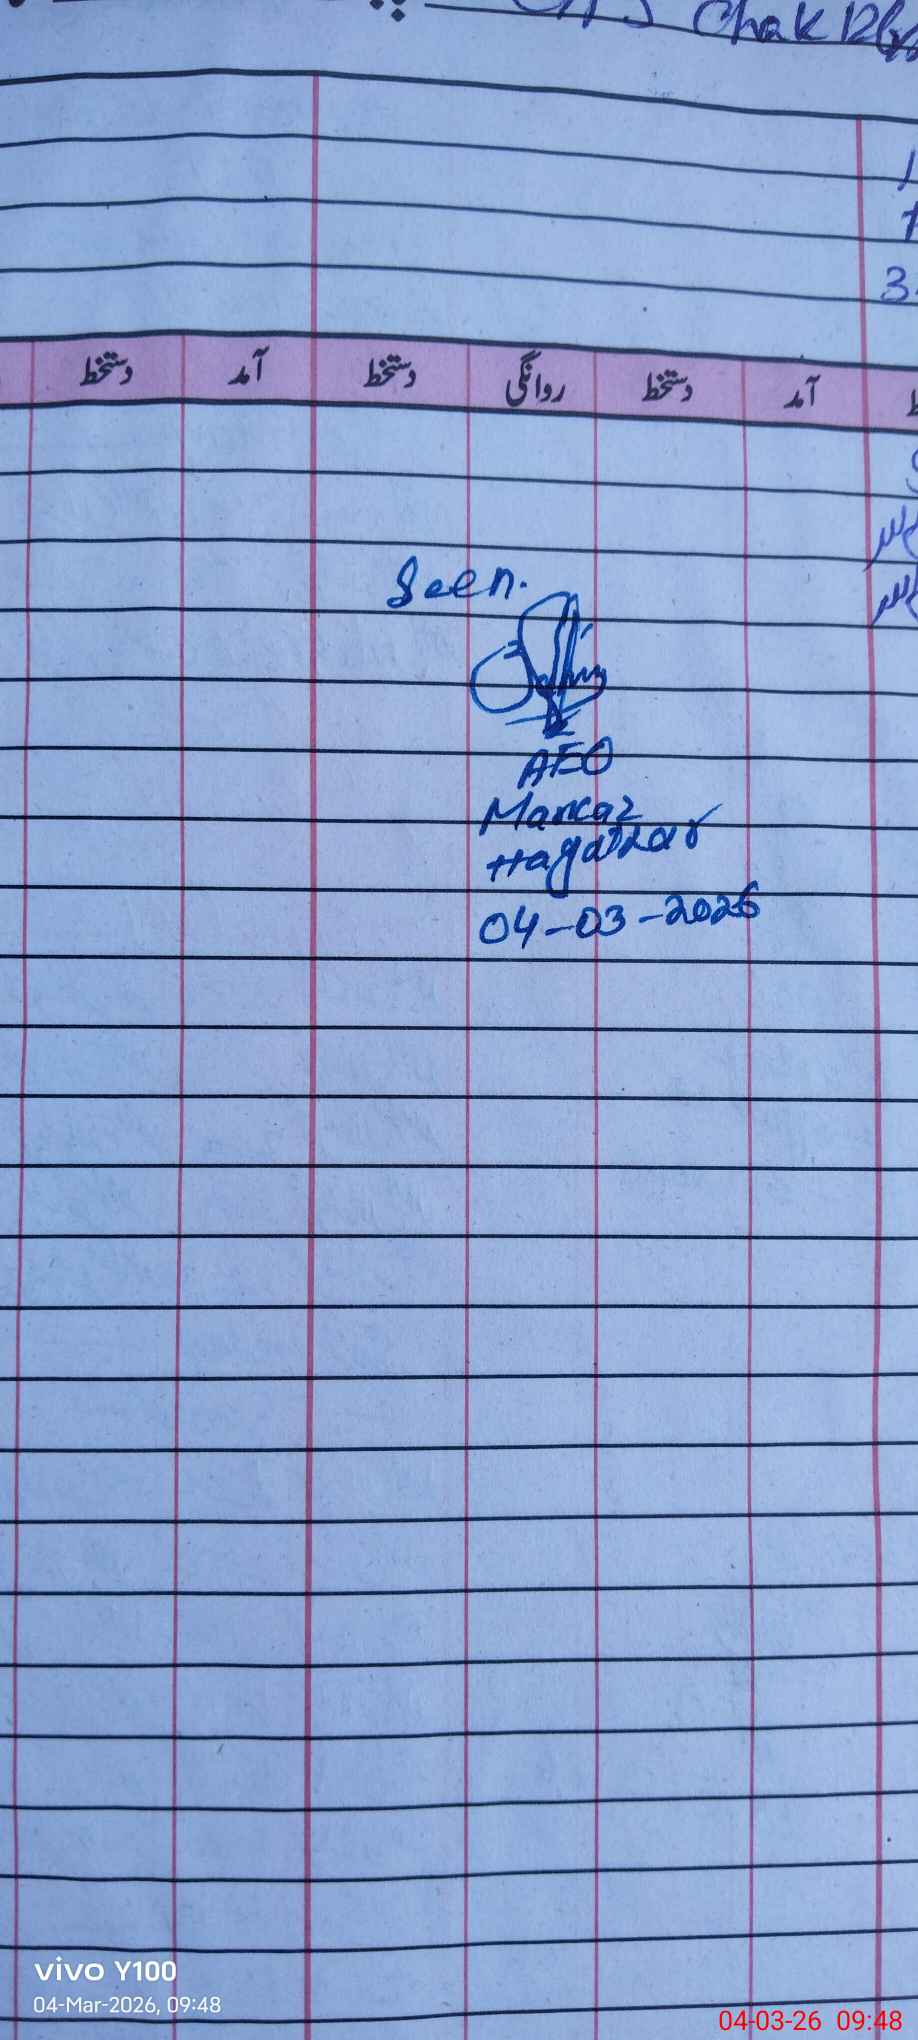 Chak
دستخط آمد دستخط روانگی دستخط آمد
Seen.
AEO
Markaz
04-03-2026
vivo Y100
04-Mar-2026, 09:48
04-03-26 09:48